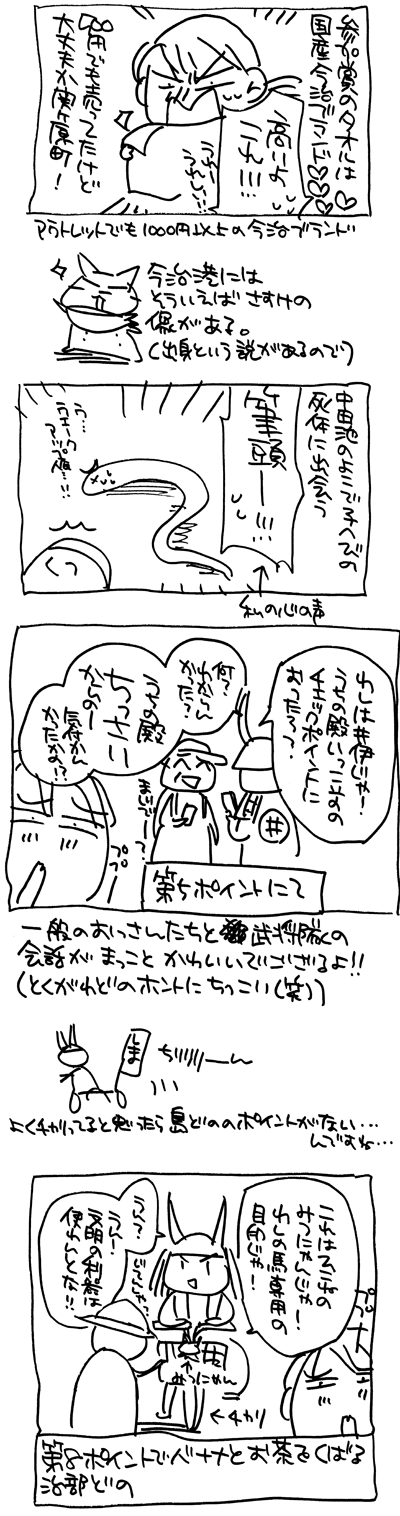 参加賞のタオルは
国産今治ブランド♡♡♡
高いよ
これ!!!
うれー
うれしい!!
500円でも売ってたけど
大丈夫か関ヶ原町!
アウトレットでも1000円以上の今治ブランド
今治港には
そういえばさすけの
像がある。
(出身という説があるので)
中池のよこで子ヘビの
死体に出会う
筆頭ー!!!
う…
ウェーク
アップ種…!!
私の心の声
わしは井伊じゃ!
うちの殿いったいどの
チェックポイントに
おったっ?
何?
わからん
かった?
うちの殿
ちっさい
からのー
気付かん
かったかの!?
井
まじでー?
ププ
第5ポイントにて
一般のおっさんたちと武将隊の
会話がまっことかわいいでござるよ!!
(とくがわどのホントにちっこい(笑))
しま
ちりりりーん
よくチャリってると思ったら島どののポイントがない…
んですね…
これは
みつにゃんじゃ!
わしの馬専用の
目印じゃ!
うん?
うん!
文明の利器は
使わんとな!!
じてんしゃっ
みつにゃん
←チャリ
プ
第8ポイントでバナナとお茶をくばる
治部どの